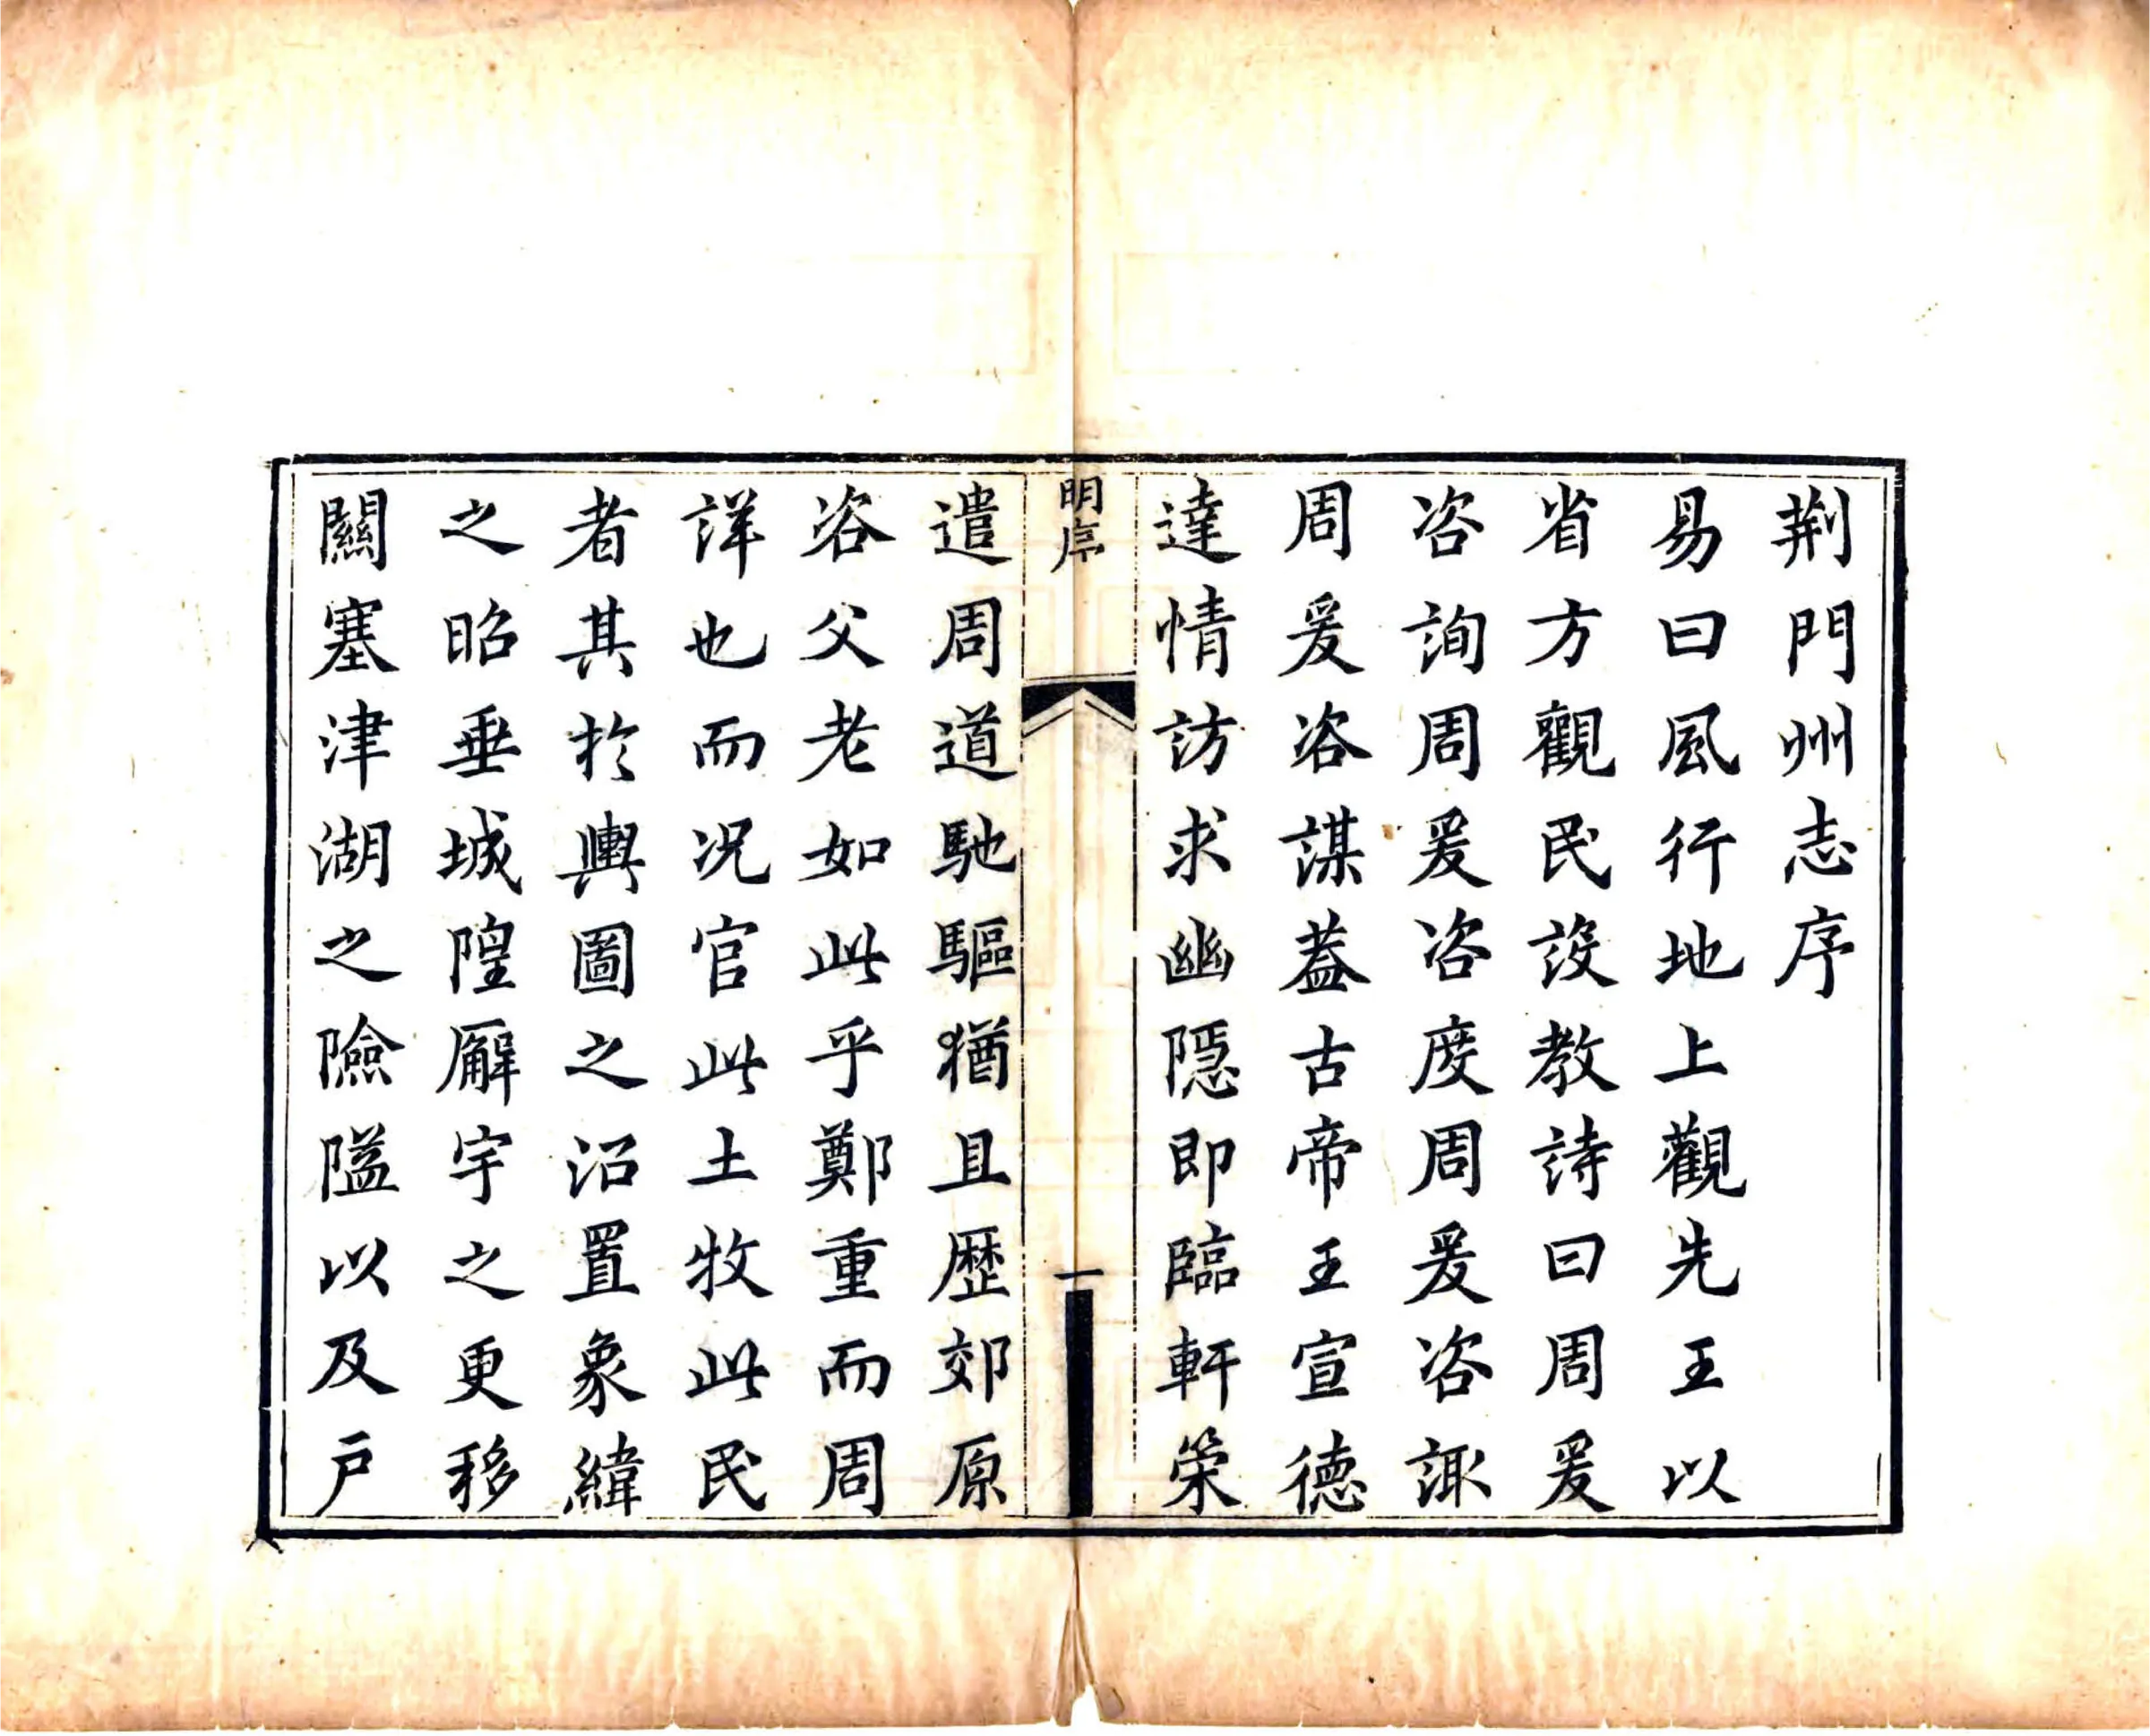 荆門州志序
易曰風行地上觀先王以
省方觀民設教詩曰周爰
咨詢周爰咨度周爰咨諏
周爰咨謀蓋古帝王宣德
達情訪求幽隱即臨軒策
明序
一
遣周道馳驅猶且歷郊原
咨父老如此乎鄭重而周
詳也而况官此土牧此民
者其於輿圖之沿置象緯
之昭垂城隍廨宇之更移
關塞津湖之險隘以及戸